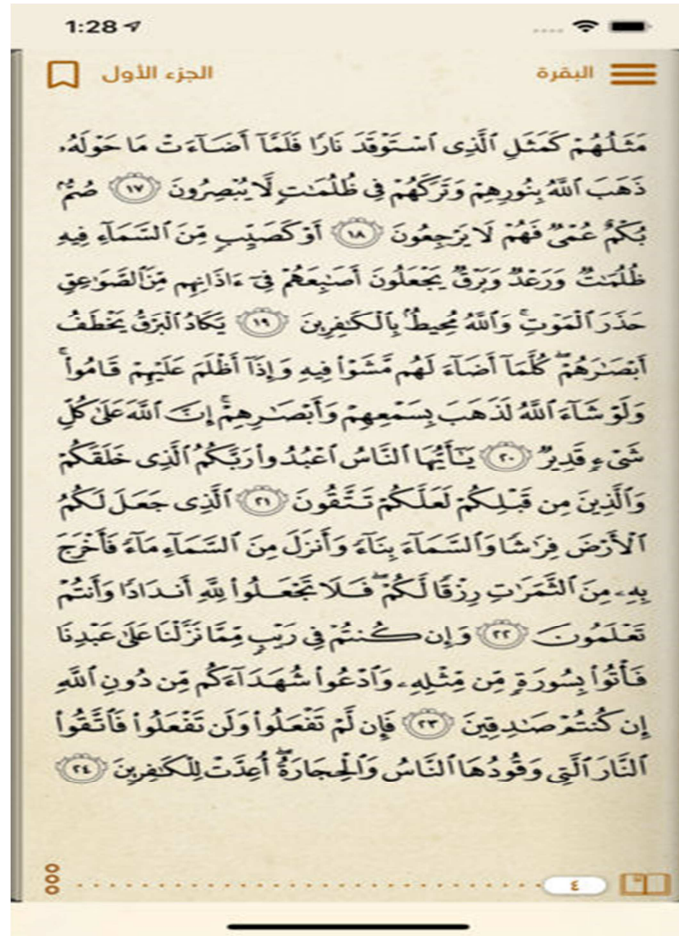 1:28
البقرة الجزء الأول
مَثَلُهُمْ كَمَثَلِ ٱلَّذِى ٱسْتَوْقَدَ نَارًا فَلَمَّآ أَضَآءَتْ مَا حَوْلَهُۥ
ذَهَبَ ٱللَّهُ بِنُورِهِمْ وَتَرَكَهُمْ فِى ظُلُمَٰتٍ لَّا يُبْصِرُونَ ١٧ صُمٌّۢ
بُكْمٌ عُمْىٌ فَهُمْ لَا يَرْجِعُونَ ١٨ أَوْ كَصَيِّبٍ مِّنَ ٱلسَّمَآءِ فِيهِ
ظُلُمَٰتٌ وَرَعْدٌ وَبَرْقٌ يَجْعَلُونَ أَصَٰبِعَهُمْ فِىٓ ءَاذَانِهِم مِّنَ ٱلصَّوَٰعِقِ
حَذَرَ ٱلْمَوْتِ ۚ وَٱللَّهُ مُحِيطٌۢ بِٱلْكَٰفِرِينَ ١٩ يَكَادُ ٱلْبَرْقُ يَخْطَفُ
أَبْصَٰرَهُمْ ۖ كُلَّمَآ أَضَآءَ لَهُم مَّشَوْا۟ فِيهِ وَإِذَآ أَظْلَمَ عَلَيْهِمْ قَامُوا۟ ۚ
وَلَوْ شَآءَ ٱللَّهُ لَذَهَبَ بِسَمْعِهِمْ وَأَبْصَٰرِهِمْ ۚ إِنَّ ٱللَّهَ عَلَىٰ كُلِّ
شَىْءٍ قَدِيرٌ ٢٠ يَٰٓأَيُّهَا ٱلنَّاسُ ٱعْبُدُوا۟ رَبَّكُمُ ٱلَّذِى خَلَقَكُمْ
وَٱلَّذِينَ مِن قَبْلِكُمْ لَعَلَّكُمْ تَتَّقُونَ ٢١ ٱلَّذِى جَعَلَ لَكُمُ
ٱلْأَرْضَ فِرَٰشًا وَٱلسَّمَآءَ بِنَآءً وَأَنزَلَ مِنَ ٱلسَّمَآءِ مَآءً فَأَخْرَجَ
بِهِۦ مِنَ ٱلثَّمَرَٰتِ رِزْقًا لَّكُمْ ۖ فَلَا تَجْعَلُوا۟ لِلَّهِ أَندَادًا وَأَنتُمْ
تَعْلَمُونَ ٢٢ وَإِن كُنتُمْ فِى رَيْبٍ مِّمَّا نَزَّلْنَا عَلَىٰ عَبْدِنَا
فَأْتُوا۟ بِسُورَةٍ مِّن مِّثْلِهِۦ وَٱدْعُوا۟ شُهَدَآءَكُم مِّن دُونِ ٱللَّهِ
إِن كُنتُمْ صَٰدِقِينَ ٢٣ فَإِن لَّمْ تَفْعَلُوا۟ وَلَن تَفْعَلُوا۟ فَٱتَّقُوا۟
ٱلنَّارَ ٱلَّتِى وَقُودُهَا ٱلنَّاسُ وَٱلْحِجَارَةُ ۖ أُعِدَّتْ لِلْكَٰفِرِينَ ٢٤
٤